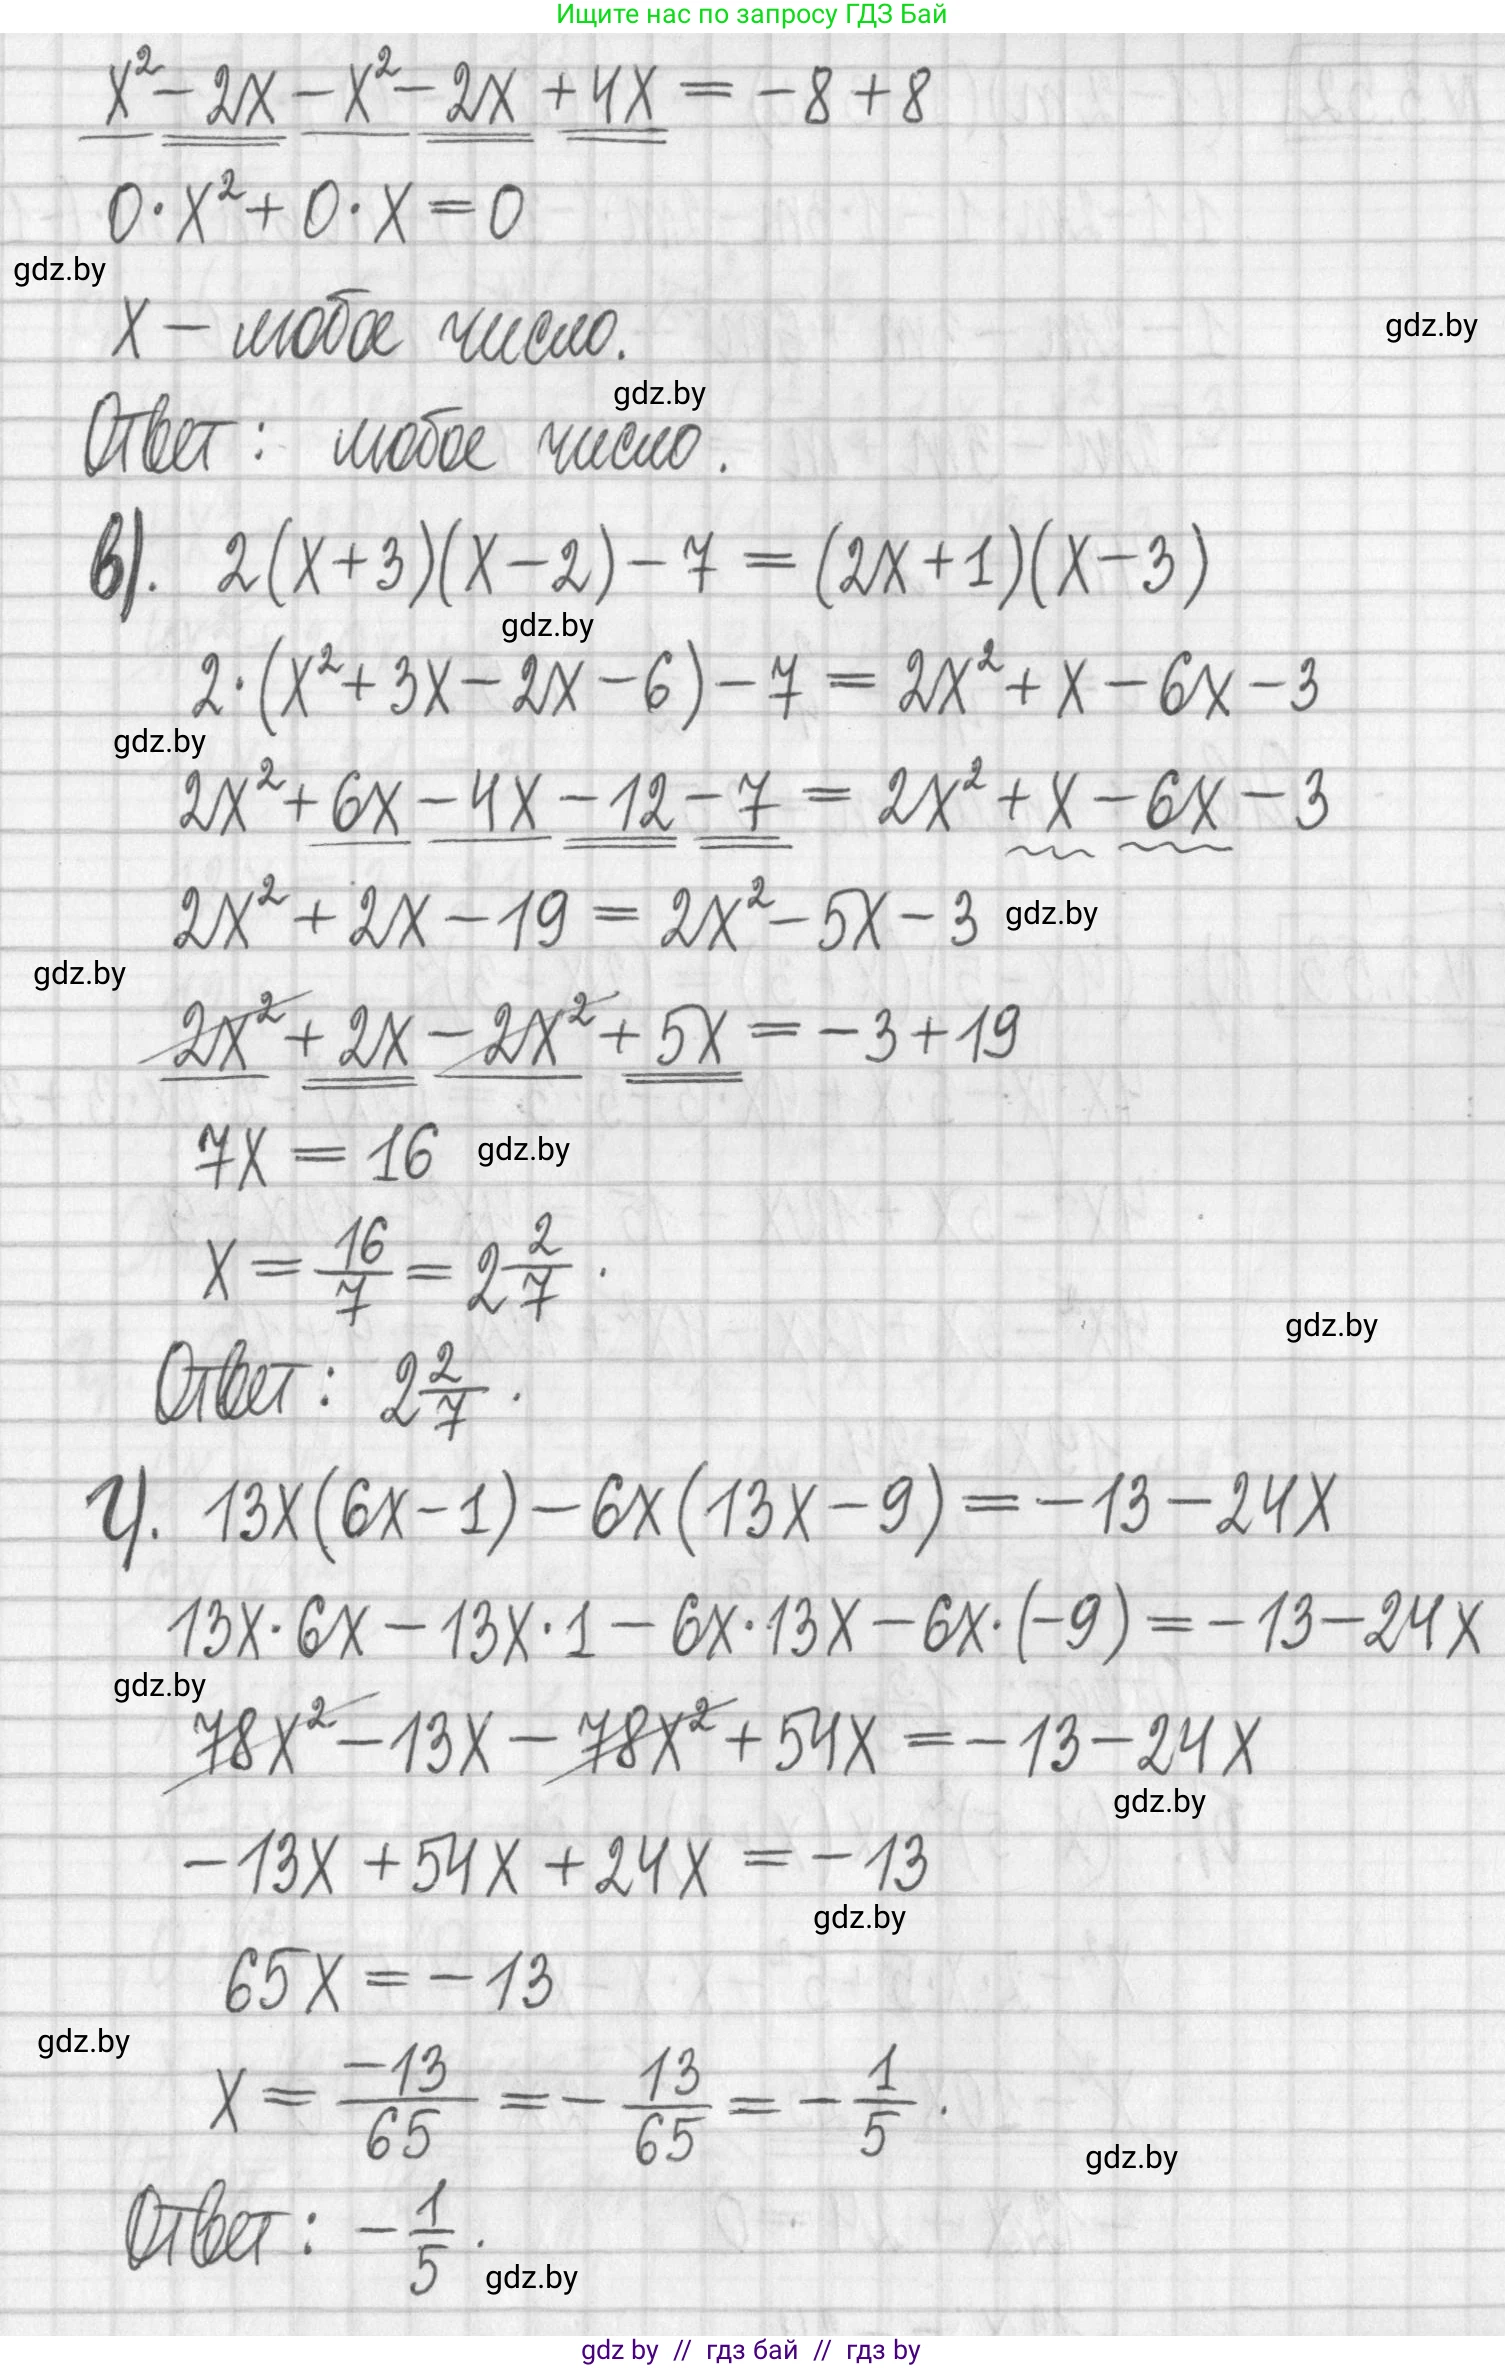 Ищите нас по запросу ГДЗ Бай
x² – 2x – x² – 2x + 4x = –8 + 8
0·x² + 0·x = 0
gdz.by
x – любое число.
gdz.by
gdz.by
Ответ: любое число.
в). 2(x+3)(x–2) – 7 = (2x+1)(x–3)
gdz.by
2·(x² + 3x – 2x – 6) – 7 = 2x² + x – 6x – 3
gdz.by
2x² + 6x – 4x – 12 – 7 = 2x² + x – 6x – 3
2x² + 2x – 19 = 2x² – 5x – 3 gdz.by
gdz.by
2x² + 2x – 2x² + 5x = –3 + 19
7x = 16 gdz.by
x = 16/7 = 2 2/7.
gdz.by
Ответ: 2 2/7.
г). 13x(6x–1) – 6x(13x–9) = –13 – 24x
13x·6x – 13x·1 – 6x·13x – 6x·(–9) = –13 – 24x
gdz.by
78x² – 13x – 78x² + 54x = –13 – 24x
gdz.by
–13x + 54x + 24x = –13
gdz.by
65x = –13
gdz.by
x = –13/65 = –13/65 = –1/5.
gdz.by
Ответ: –1/5.
gdz.by
gdz by // гдз бай // гдз by